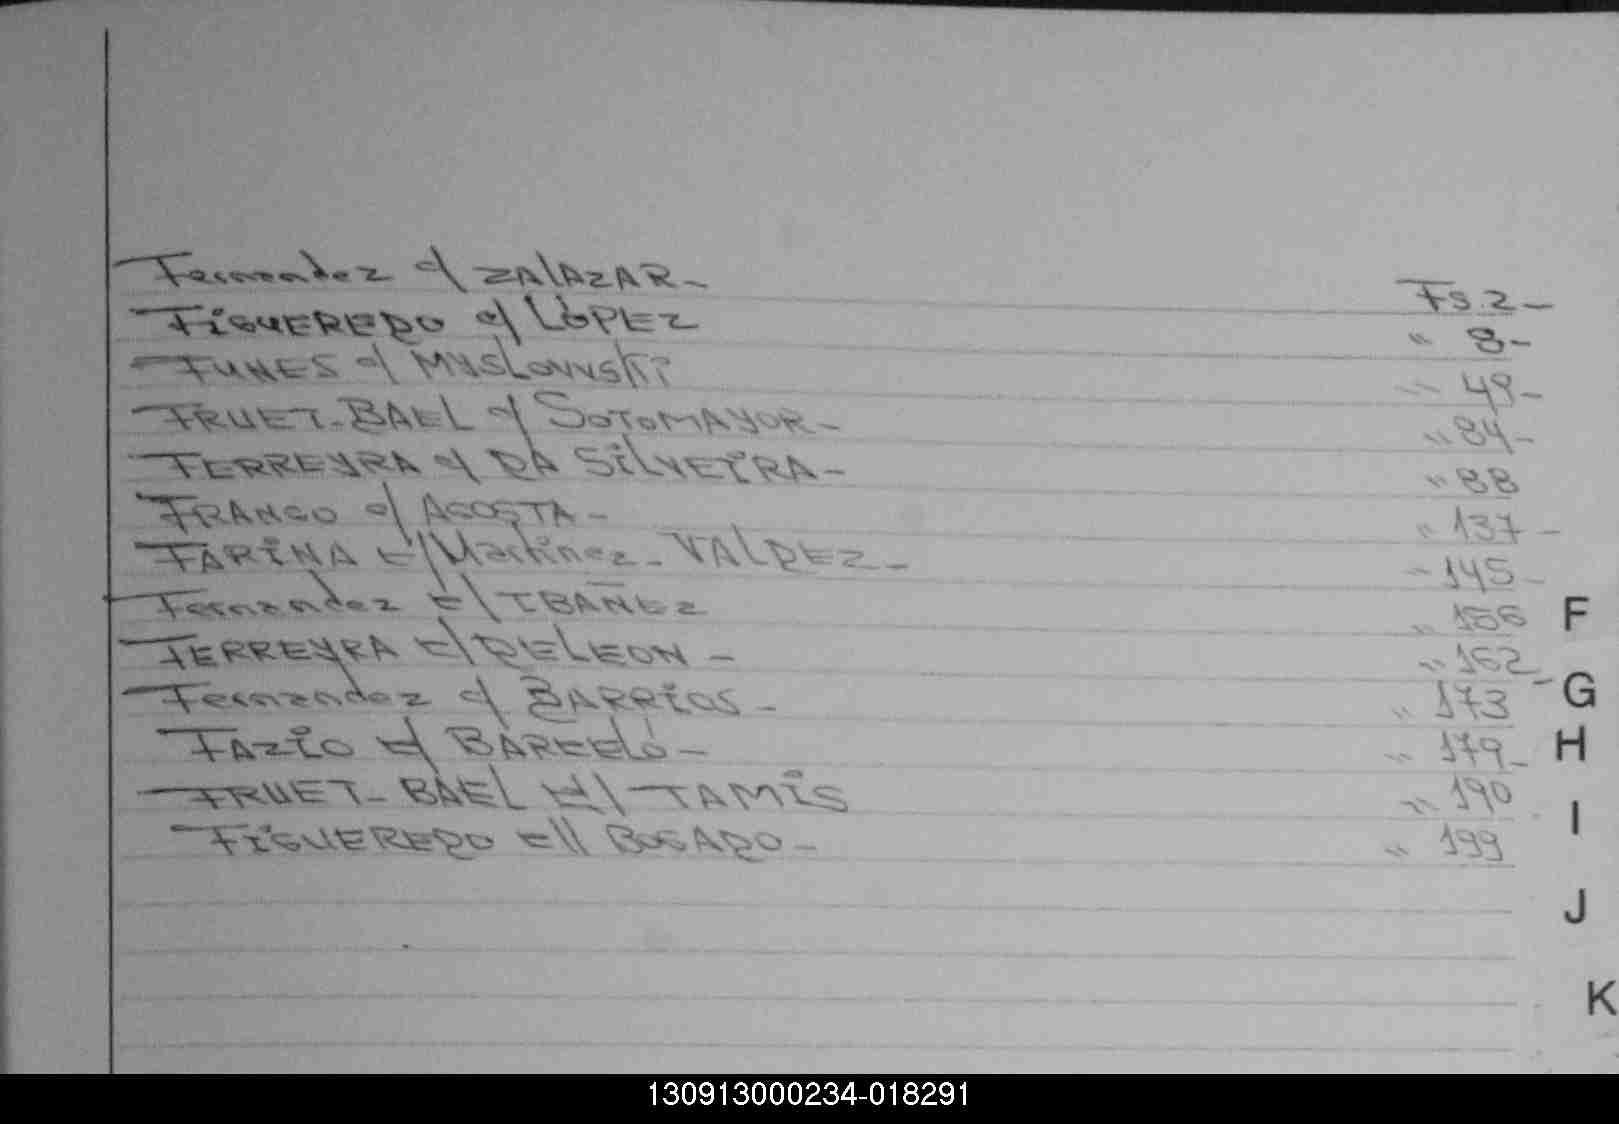 Fernandez c/ ZAlAZAR- Fs. 2-
FiGUEREDO c/ LóPEZ " 8-
FUNES c/ MYSLOWSKi " 49-
FRUET-BAEL c/ SOTOMAYOR- " 84-
FERREYRA c/ DA SiLVEiRA- " 88
FRANCO c/ ACOSTA- " 137-
FARiNA c/ Martinez-VALDEZ- " 145-
Fernandez c/ IBAÑEZ " 156 F
FERREYRA c/ DELEON- " 162-
Fernandez c/ BARRiOS- " 173 G
FAZiO c/ BARCEló- " 179- H
FRUET-BAEL c/ TAMiS " 190
I
FiGUEREDO c/ BOGADO- " 199
J
K
130913000234-018291